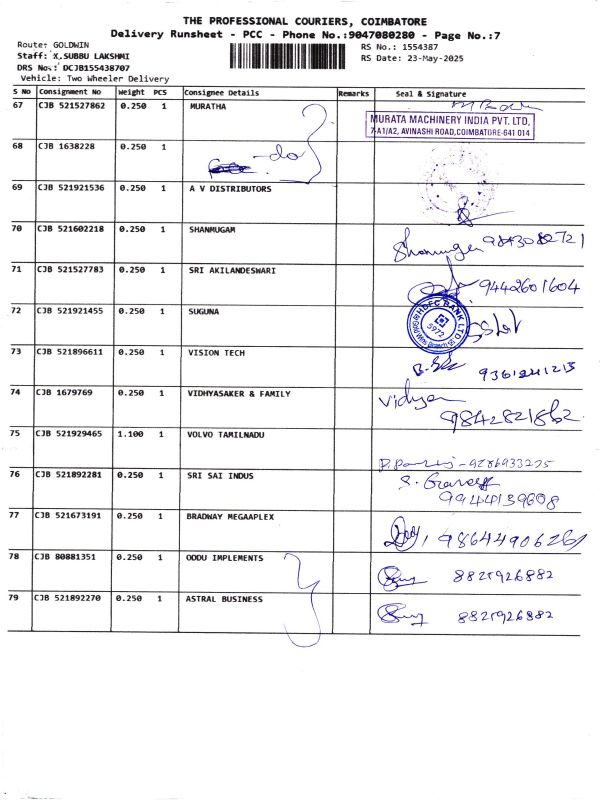 THE PROFESSIONAL COURIERS, COIMBATORE
Delivery Runsheet - PCC - Phone No.:9047080280 - Page No.:7
Route: GOLDWIN
RS No.: 1554387
Staff: X.SUBBU LAKSHMI
RS Date: 23-May-2025
DRS No.: DCJB155438707
Vehicle: Two Wheeler Delivery
S No Consignment No Weight PCS Consignee Details Remarks Seal & Signature
67 CJB 521527862 0.250 1 MURATHA
MURATA MACHINERY INDIA PVT. LTD,
7-A1/A2, AVINASHI ROAD, COIMBATORE-641 014
68 CJB 1638228 0.250 1 -do
69 CJB 521921536 0.250 1 A V DISTRIBUTORS
70 CJB 521602218 0.250 1 SHANMUGAM
71 CJB 521527783 0.250 1 SRI AKILANDESWARI 9442601604
72 CJB 521921455 0.250 1 SUGUNA HDFC BANK LTD 5972
73 CJB 521896611 0.250 1 VISION TECH
74 CJB 1679769 0.250 1 VIDHYASAKER & FAMILY Vidhya
75 CJB 521929465 1.100 1 VOLVO TAMILNADU
76 CJB 521892281 0.250 1 SRI SAI INDUS
9944139608
77 CJB 521673191 0.250 1 BRADWAY MEGAAPLEX
78 CJB 80881351 0.250 1 ODDU IMPLEMENTS 8825926882
79 CJB 521892270 0.250 1 ASTRAL BUSINESS 8825926882